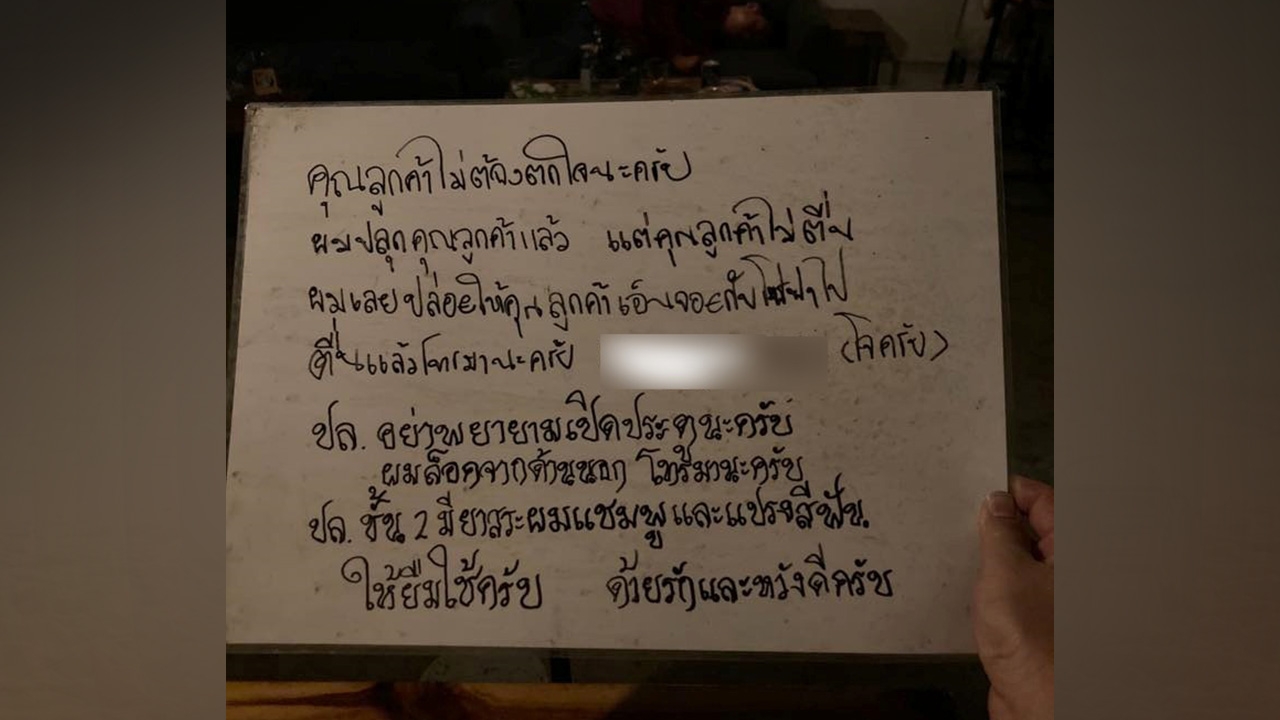 คุณลูกค้าไม่ต้องตกใจนะครับ
ผมปลุกคุณลูกค้าแล้ว แต่คุณลูกค้าไม่ตื่น
ผมเลยปล่อยให้คุณลูกค้าเอ็นจอยกับโซฟาไป
ตื่นแล้วโทรมานะครับ (โจครับ)
ปล. อย่าพยายามเปิดประตูนะครับ
ผมล็อคจากด้านนอก โทรมานะครับ
ปล. ชั้น 2 มียาสระผมแชมพูและแปรงสีฟัน
ให้ยืมใช้ครับ ด้วยรักและหวังดีครับ